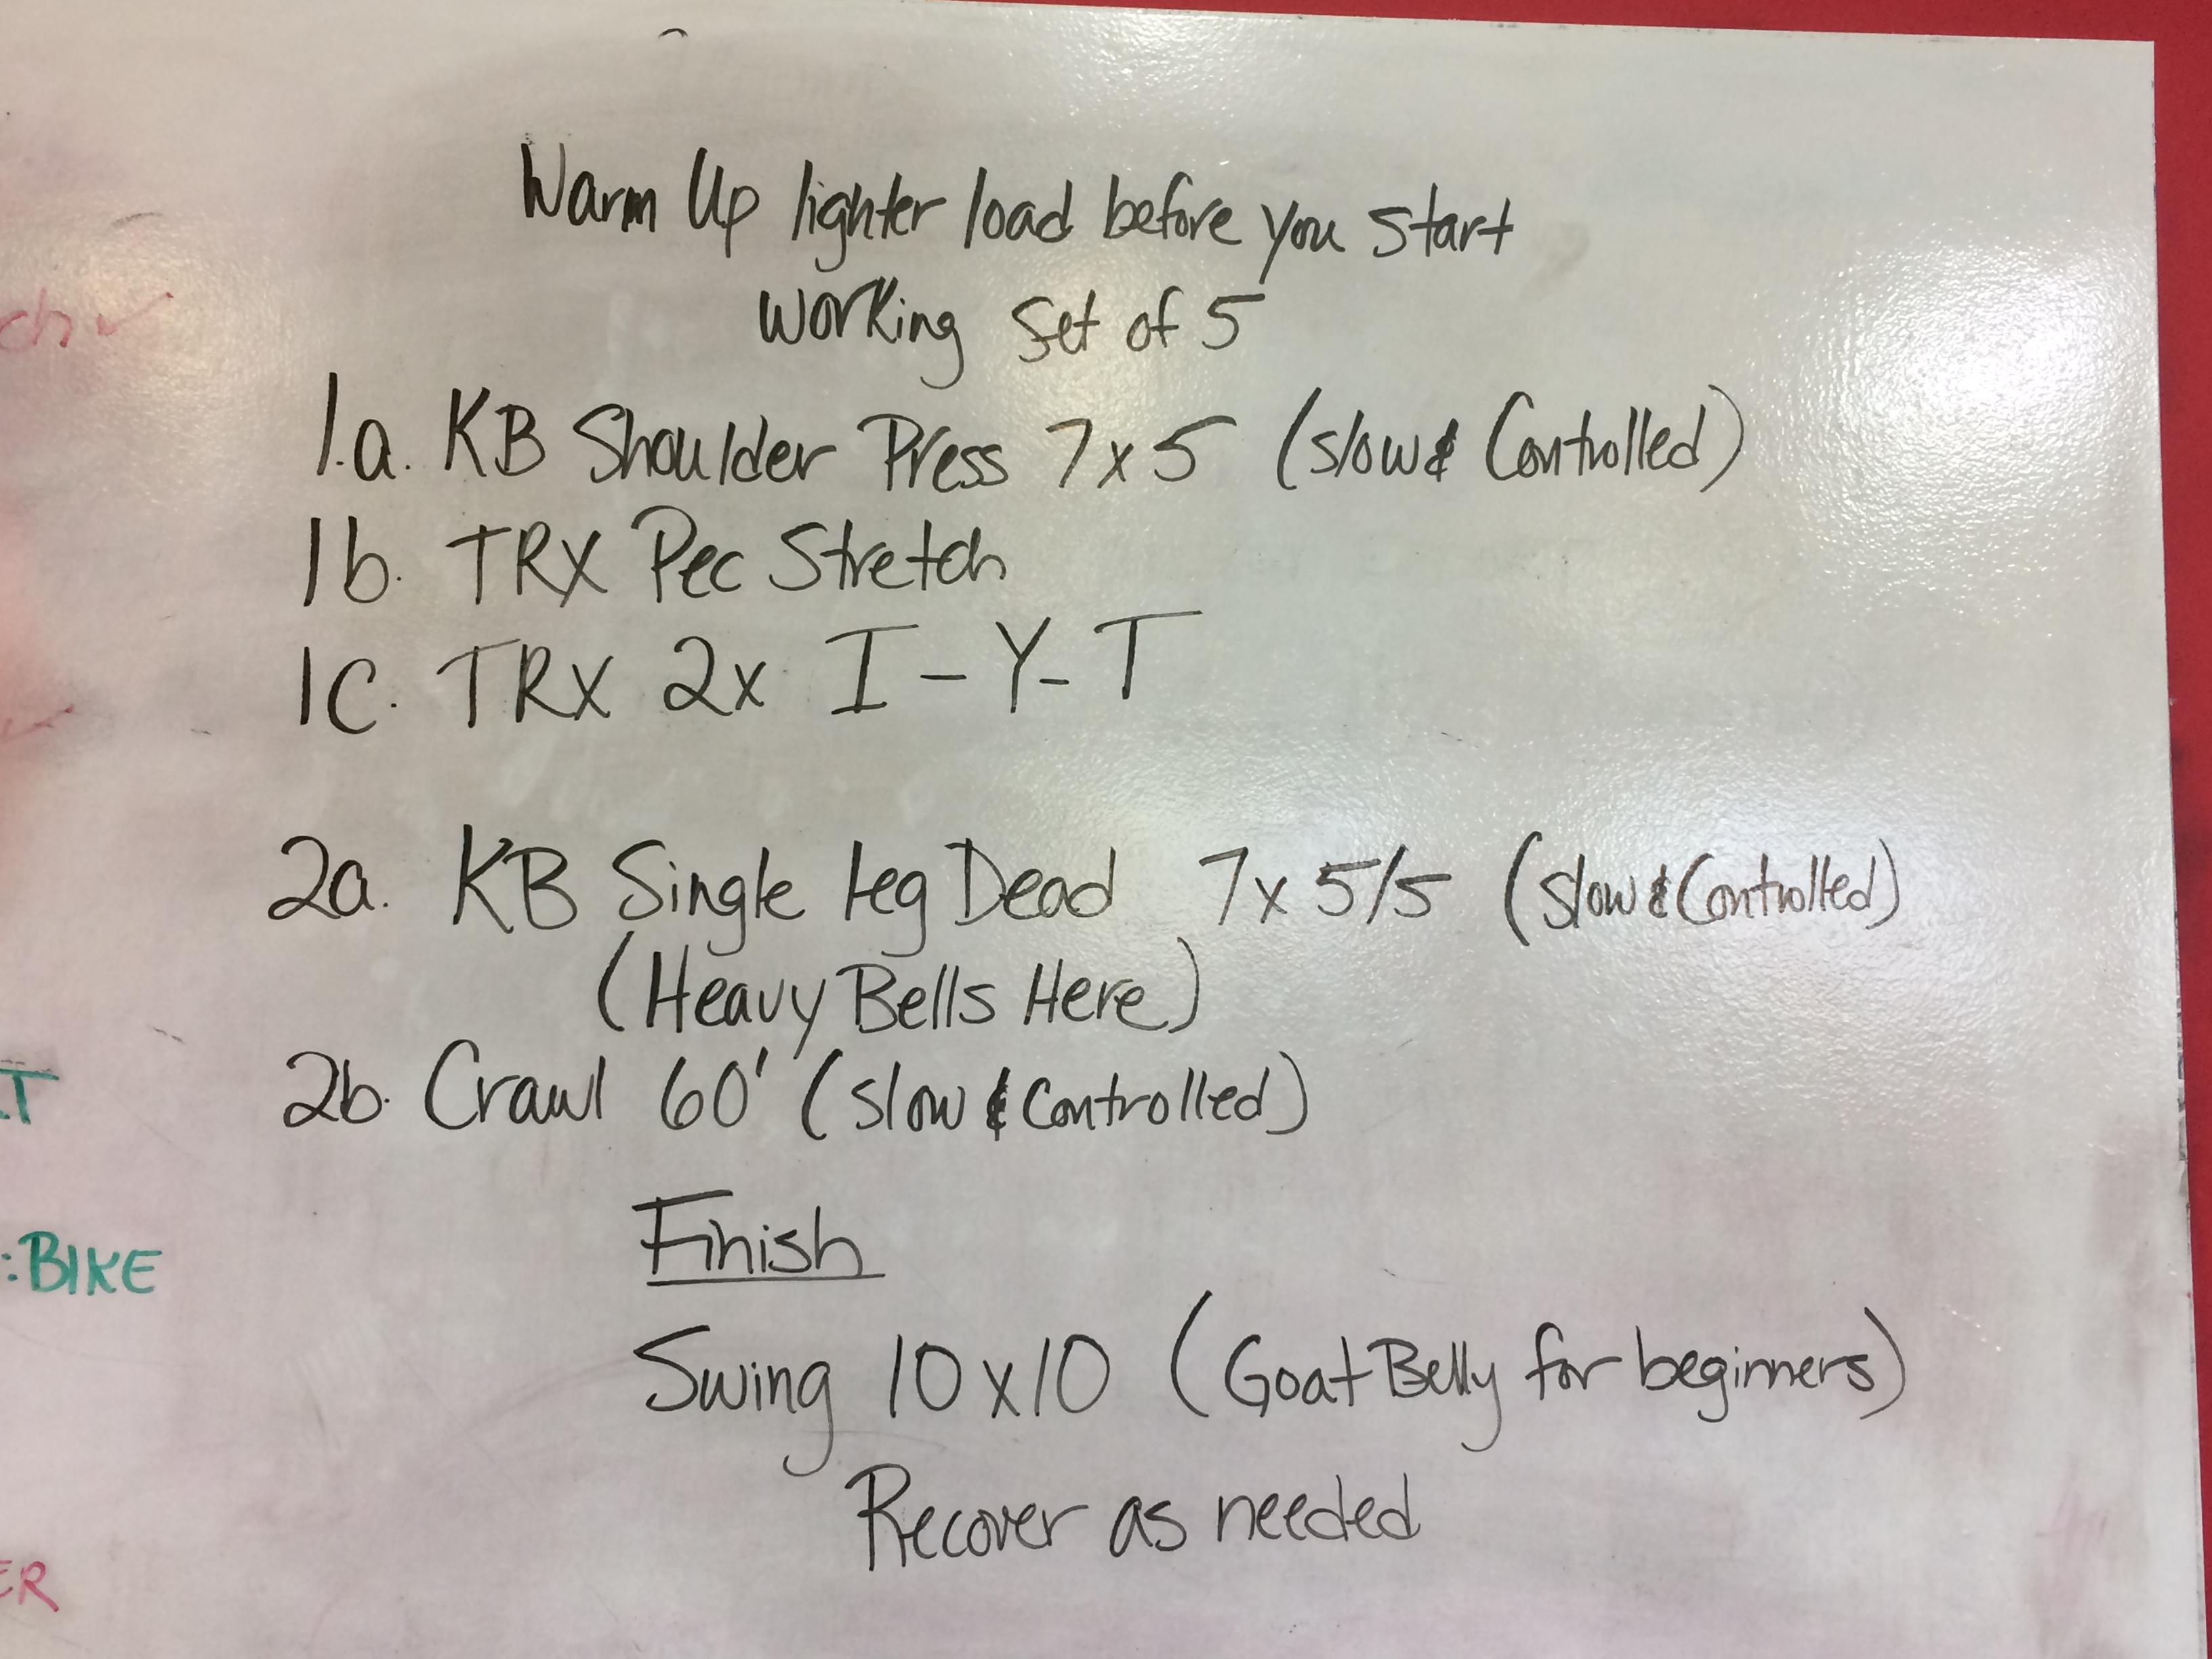 Warm Up lighter load before you start
working set of 5
1.a. KB Shoulder Press 7x5 (slow & Controlled)
1b. TRX Pec Stretch
1c. TRX 2x I-Y-T
2a. KB Single Leg Dead 7x 5/5 (slow & Controlled)
(Heavy Bells Here)
2b. Crawl 60' (slow & Controlled)
Finish
Swing 10x10 (Goat Belly for beginners)
Recover as needed
ch
T
:BIKE
ER